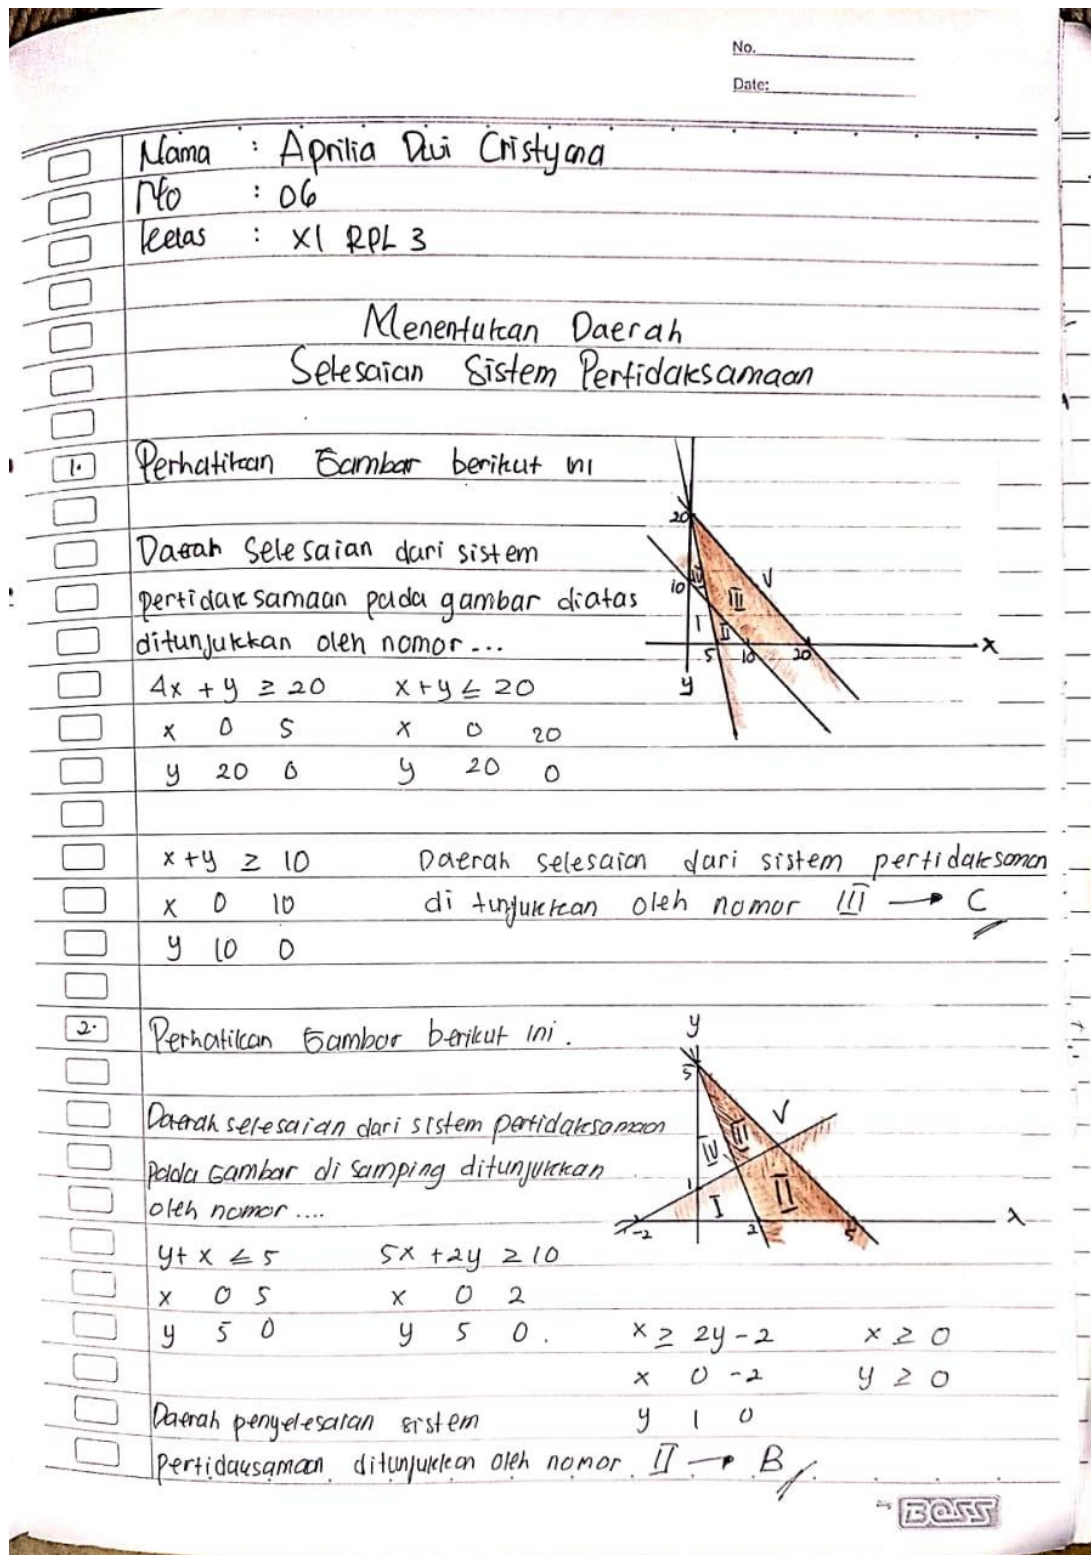 No.
Date:
Nama : Aprilia Dwi Cristyana
No : 06
Kelas : XI RPL 3
Menentukan Daerah
Selesaian Sistem Pertidaksamaan
1. Perhatikan Gambar berikut ini
Daerah Selesaian dari sistem
pertidaksamaan pada gambar diatas
ditunjukkan oleh nomor...
20
10
IV
III
V
I
II
5 10 20
x
y
4x + y ≥ 20 x+y ≤ 20
x 0 5 x 0 20
y 20 0 y 20 0
x+y ≥ 10 Daerah selesaian dari sistem pertidaksaman
x 0 10 di tunjukkan oleh nomor III → C
y 10 0
2. Perhatikan Gambar berikut ini.
y
5
Daerah selesaian dari sistem pertidaksamaan
pada Gambar di samping ditunjukkan
oleh nomor....
V
IV III
1
I II
-2 2 5
x
y+ x ≤ 5 5x +2y ≥ 10
x 0 5 x 0 2
y 5 0 y 5 0. x ≥ 2y-2 x ≥ 0
x 0 -2 y ≥ 0
Daerah penyelesaian sistem y 1 0
Pertidaksamaan ditunjukkan oleh nomor II → B
BOSS